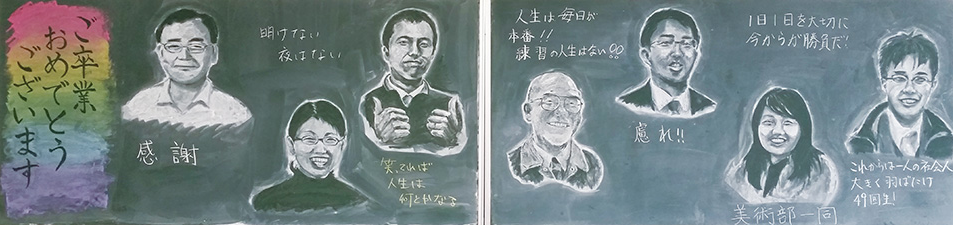 ご卒業
おめでとう
ございます
感謝
明けない
夜はない
笑ってれば
人生は
何とかなる
人生は毎日が
本番!!
練習の人生はない!!
慮れ!!
1日1日を大切に
今からが勝負だ!
美術部一同
これからは一人の社会人
大きく羽ばたけ
49回生!